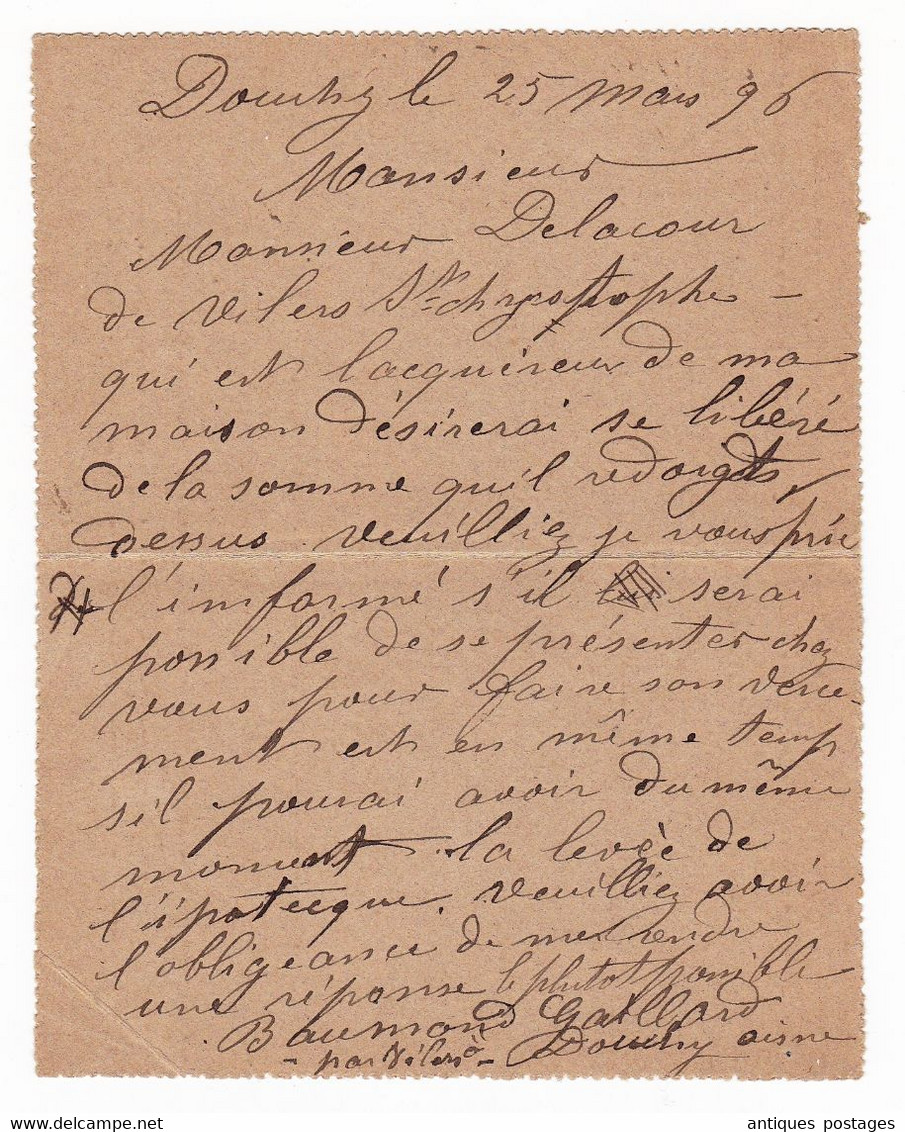 Douchy le 25 Mars 96
Monsieur
Monsieur Delacour
de Vilers St chrystophe -
qui est lacquéreur de ma
maison désirerai se libéré
de la somme qu'il redoigts
dessus. Veuilliez je vous prie
l'imformé s'il serai
ponible de se présenter chez
vous pour faire son verce-
ment est en même temp
sil pourai avoir du même
moment la levée de
l'ipotecque. Veuilliez avoir
l'obligeance de me rendre
une réponse le plutot ponible
Baumond Gaillard
- par Vilers - Douchy aisne
antiques postages